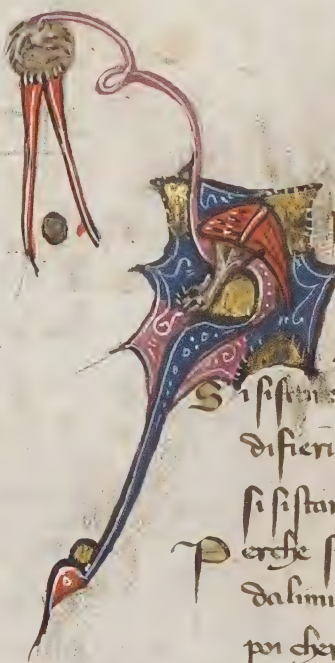 Si sistare
difieri
si sistar
Perche s
dalimi
poi cher